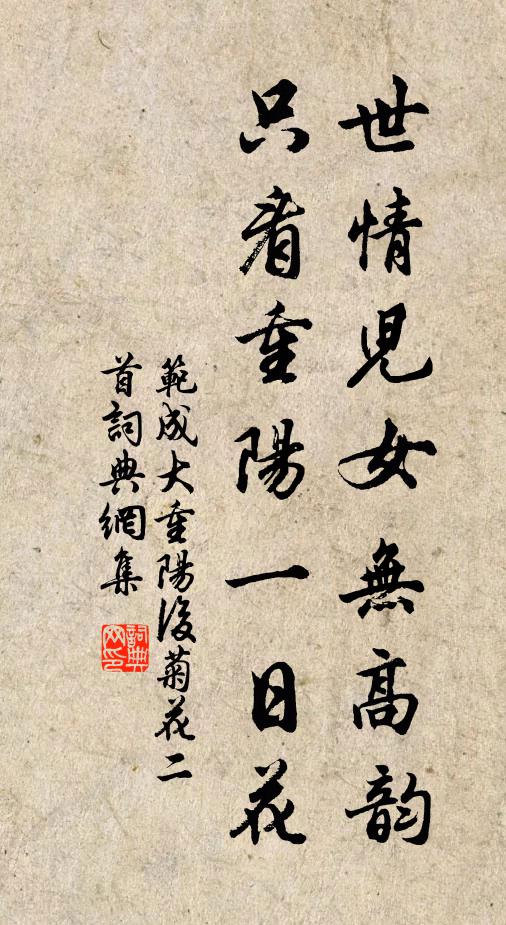 世情兒女無高韵
只看重陽一日花
範成大重陽後菊花二
首詞典網集
詞典网印